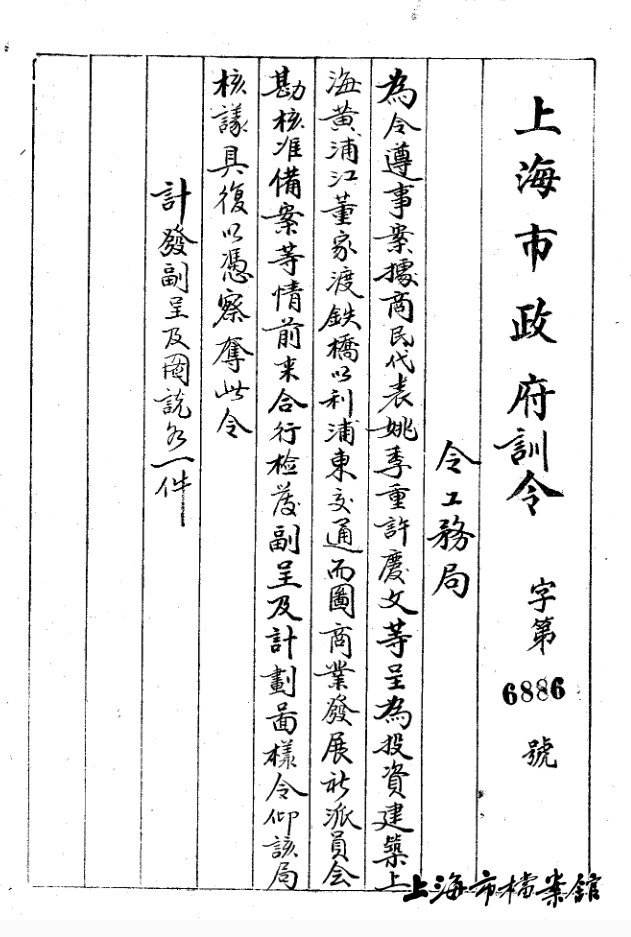 上海市政府訓令 字第6886號
令工務局
為令遵事案據商民代表姚季重許慶文等呈為投資建築上
海黄浦江董家渡鉄橋以利浦東交通而圖商業發展祈派員会
勘核准備案等情前来合行检發副呈及計劃圖樣令仰該局
核議具復以憑察奪此令
計發副呈及圖説各一件
上海市檔案館